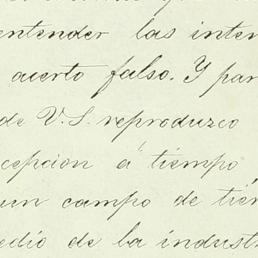 entender las inten
acierto falso. Y par
de V. S. reproduzco
cepcion á tiempo
un campo de tiem
edio de la industr